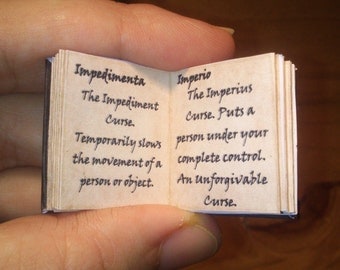 Impedimenta
The Impediment
Curse.
Temporarily slows
the movement of a
person or object.
Imperio
The Imperius
Curse. Puts a
person under your
complete control.
An Unforgivable
Curse.